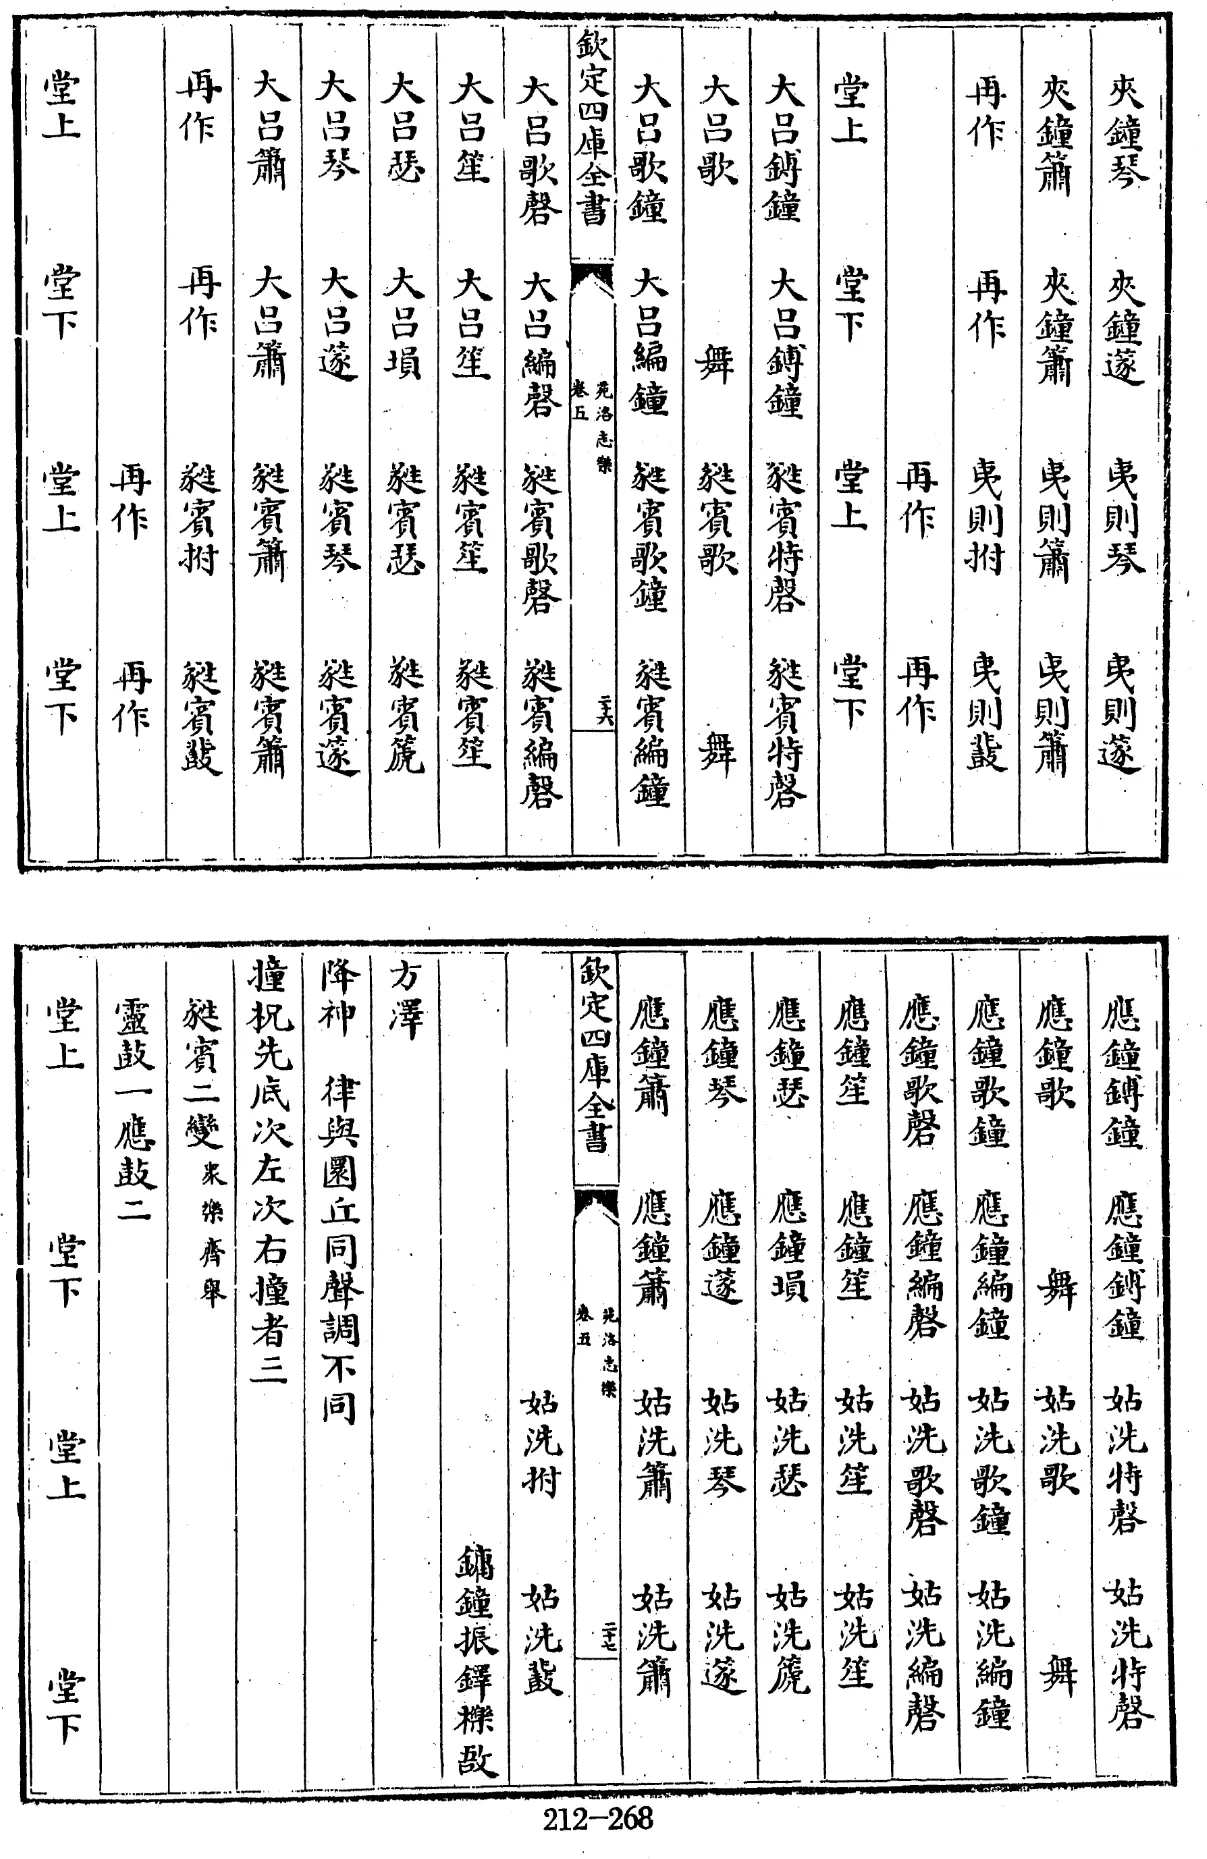 夾鐘琴 夾鐘䆳 夷則琴 夷則䆳
夾鐘簫 夾鐘簫 夷則簫 夷則簫
再作 再作 夷則拊 夷則鼗
再作 再作
堂上 堂下 堂上 堂下
大呂鎛鐘 大呂鎛鐘 蕤賓特磬 蕤賓特磬
大呂歌 舞 蕤賓歌 舞
大呂歌鐘 大呂編鐘 蕤賓歌鐘 蕤賓編鐘
欽定四庫全書 苑洛志樂 卷五 二十六
大呂歌磬 大呂編磬 蕤賓歌磬 蕤賓編磬
大呂笙 大呂笙 蕤賓笙 蕤賓笙
大呂瑟 大呂塤 蕤賓瑟 蕤賓篪
大呂琴 大呂䆳 蕤賓琴 蕤賓䆳
大呂簫 大呂簫 蕤賓簫 蕤賓簫
再作 再作 蕤賓拊 蕤賓鼗
再作 再作
堂上 堂下 堂上 堂下
應鐘鎛鐘 應鐘鎛鐘 姑洗特磬 姑洗特磬
應鐘歌 舞 姑洗歌 舞
應鐘歌鐘 應鐘編鐘 姑洗歌鐘 姑洗編鐘
應鐘歌磬 應鐘編磬 姑洗歌磬 姑洗編磬
應鐘笙 應鐘笙 姑洗笙 姑洗笙
應鐘瑟 應鐘塤 姑洗瑟 姑洗篪
應鐘琴 應鐘䆳 姑洗琴 姑洗䆳
應鐘簫 應鐘簫 姑洗簫 姑洗簫
欽定四庫全書 苑洛志樂 卷五 二十七
姑洗拊 姑洗鼗
鏞鐘振鐸櫟敔
方澤
降神 律與圜丘同聲調不同
撞柷先底次左次右撞者三
蕤賓二變 眾樂齊舉
靈鼓一應鼓二
堂上 堂下 堂上 堂下
212-268